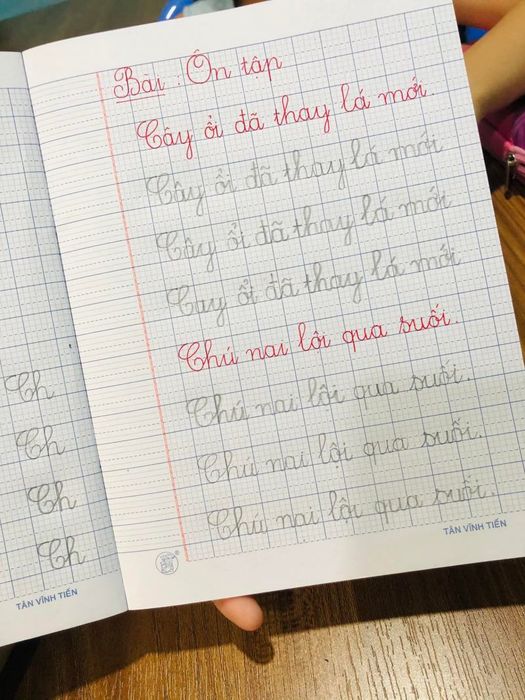 Ch
Ch
Ch
Ch
TÂN VĨNH TIẾN
Bài : Ôn tập
Cây ổi đã thay lá mới.
Cây ổi đã thay lá mới
Cây ổi đã thay lá mới
Cay ổi đã thay lá mới
Chú nai lội qua suối.
Chú nai lội qua suối.
Chú nai lội qua suối.
Chú nai lội qua suối.
TÂN VĨNH TIẾN